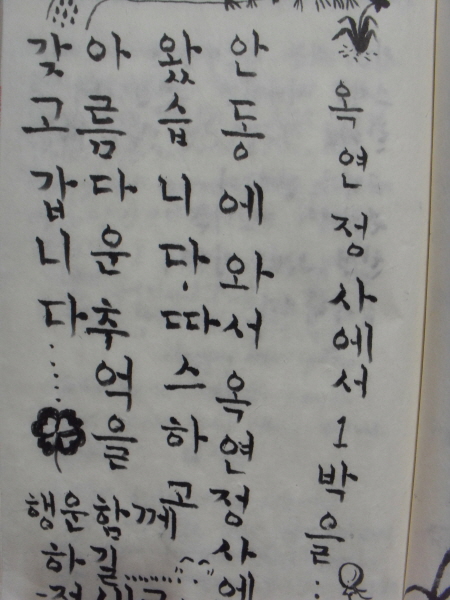 옥연정사에서 1박을..
안동에와서 옥연정사에
왔습니다. 따스하고
아름다운 추억을
갖고갑니다......
행운 함께
하길........